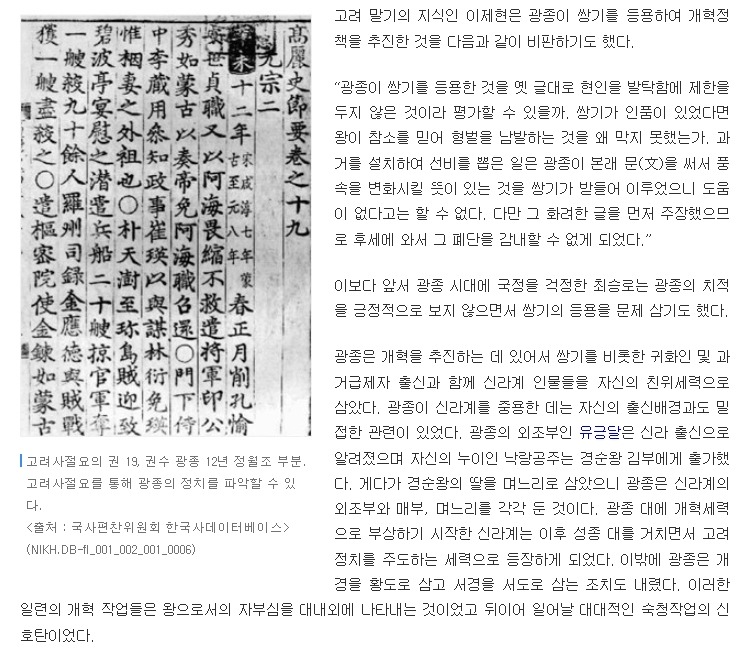 高麗史節要卷之十九
元宗二
辛未十二年 宋咸淳七年蒙古至元八年 春正月削孔愉
安世貞職又以阿海畏縮不救遣將軍印公
秀如蒙古以奏帝免阿海職召還〇門下侍
中李藏用叅知政事崔瑛以與謀林衍免瑛
惟裀妻之外祖也〇朴天澍至珍島賊迎致
碧波亭宴慰之潜遣兵船二十艘掠官軍奪
一艘殺九十餘人羅州司錄金應德與賊戰
獲一艘盡殺之〇遣樞密院使金鍊如蒙古
고려사절요의 권 19, 권수 광종 12년 정월조 부분.
고려사절요를 통해 광종의 정치를 파악할 수 있
다.
<출처 : 국사편찬위원회 한국사데이터베이스>
(NIKH.DB-fl_001_002_001_0006)
고려 말기의 지식인 이제현은 광종이 쌍기를 등용하여 개혁정
책을 추진한 것을 다음과 같이 비판하기도 했다.
“광종이 쌍기를 등용한 것을 옛 글대로 현인을 발탁함에 제한을
두지 않은 것이라 평가할 수 있을까. 쌍기가 인품이 있었다면
왕이 참소를 믿어 형벌을 남발하는 것을 왜 막지 못했는가. 과
거를 설치하여 선비를 뽑은 일은 광종이 본래 문(文)을 써서 풍
속을 변화시킬 뜻이 있는 것을 쌍기가 받들어 이루었으니 도움
이 없다고는 할 수 없다. 다만 그 화려한 글을 먼저 주장했으므
로 후세에 와서 그 폐단을 감내할 수 없게 되었다.”
이보다 앞서 광종 시대에 국정을 걱정한 최승로는 광종의 치적
을 긍정적으로 보지 않으면서 쌍기의 등용을 문제 삼기도 했다.
광종은 개혁을 추진하는 데 있어서 쌍기를 비롯한 귀화인 및 과
거급제자 출신과 함께 신라계 인물들을 자신의 친위세력으로
삼았다. 광종이 신라계를 중용한 데는 자신의 출신배경과도 밀
접한 관련이 있었다. 광종의 외조부인 유긍달은 신라 출신으로
알려졌으며 자신의 누이인 낙랑공주는 경순왕 김부에게 출가했
다. 게다가 경순왕의 딸을 며느리로 삼았으니 광종은 신라계의
외조부와 매부, 며느리를 각각 둔 것이다. 광종 대에 개혁세력
으로 부상하기 시작한 신라계는 이후 성종 대를 거치면서 고려
정치를 주도하는 세력으로 등장하게 되었다. 이밖에 광종은 개
경을 황도로 삼고 서경을 서도로 삼는 조치도 내렸다. 이러한
일련의 개혁 작업들은 왕으로서의 자부심을 대내외에 나타내는 것이었고 뒤이어 일어날 대대적인 숙청작업의 신
호탄이었다.